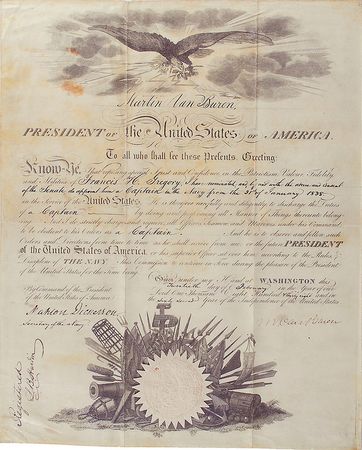 Martin Van Buren,
PRESIDENT OF the United States OF AMERICA.
To all who shall see these Presents, Greeting:
Know Ye, That reposing special Trust and Confidence in the Patriotism, Valour, Fidelity,
and Abilities of Francis H. Gregory I have nominated, and by and with the advice and consent
of the Senate, do appoint him a Captain in the Navy from the January 1838
in the Service of the United States. He is therefore carefully and diligently to discharge the Duties
of a Captain by doing and performing all Manner of Things thereunto belonging
And I do strictly charge and require all Officers, Seamen and Marines under his Command
to be obedient to his Orders as a Captain And he is to observe and follow such
Orders and Directions from time to time as he shall receive from me or the future PRESIDENT
of the United States of America, or his superior Officer set over him, according to the Rules &
Discipline of THE NAVY. This Commission to continue in force during the pleasure of the President
of the United States for the time being.
Given under my Hand at WASHINGTON this
day of February in the Year of our
Lord One Thousand Eight Hundred and and in the
Year of the Independence of the United States
By Command of the President
of the United States of America
Mahlon Dickerson
Secretary of the Navy
M Van Buren
Registered